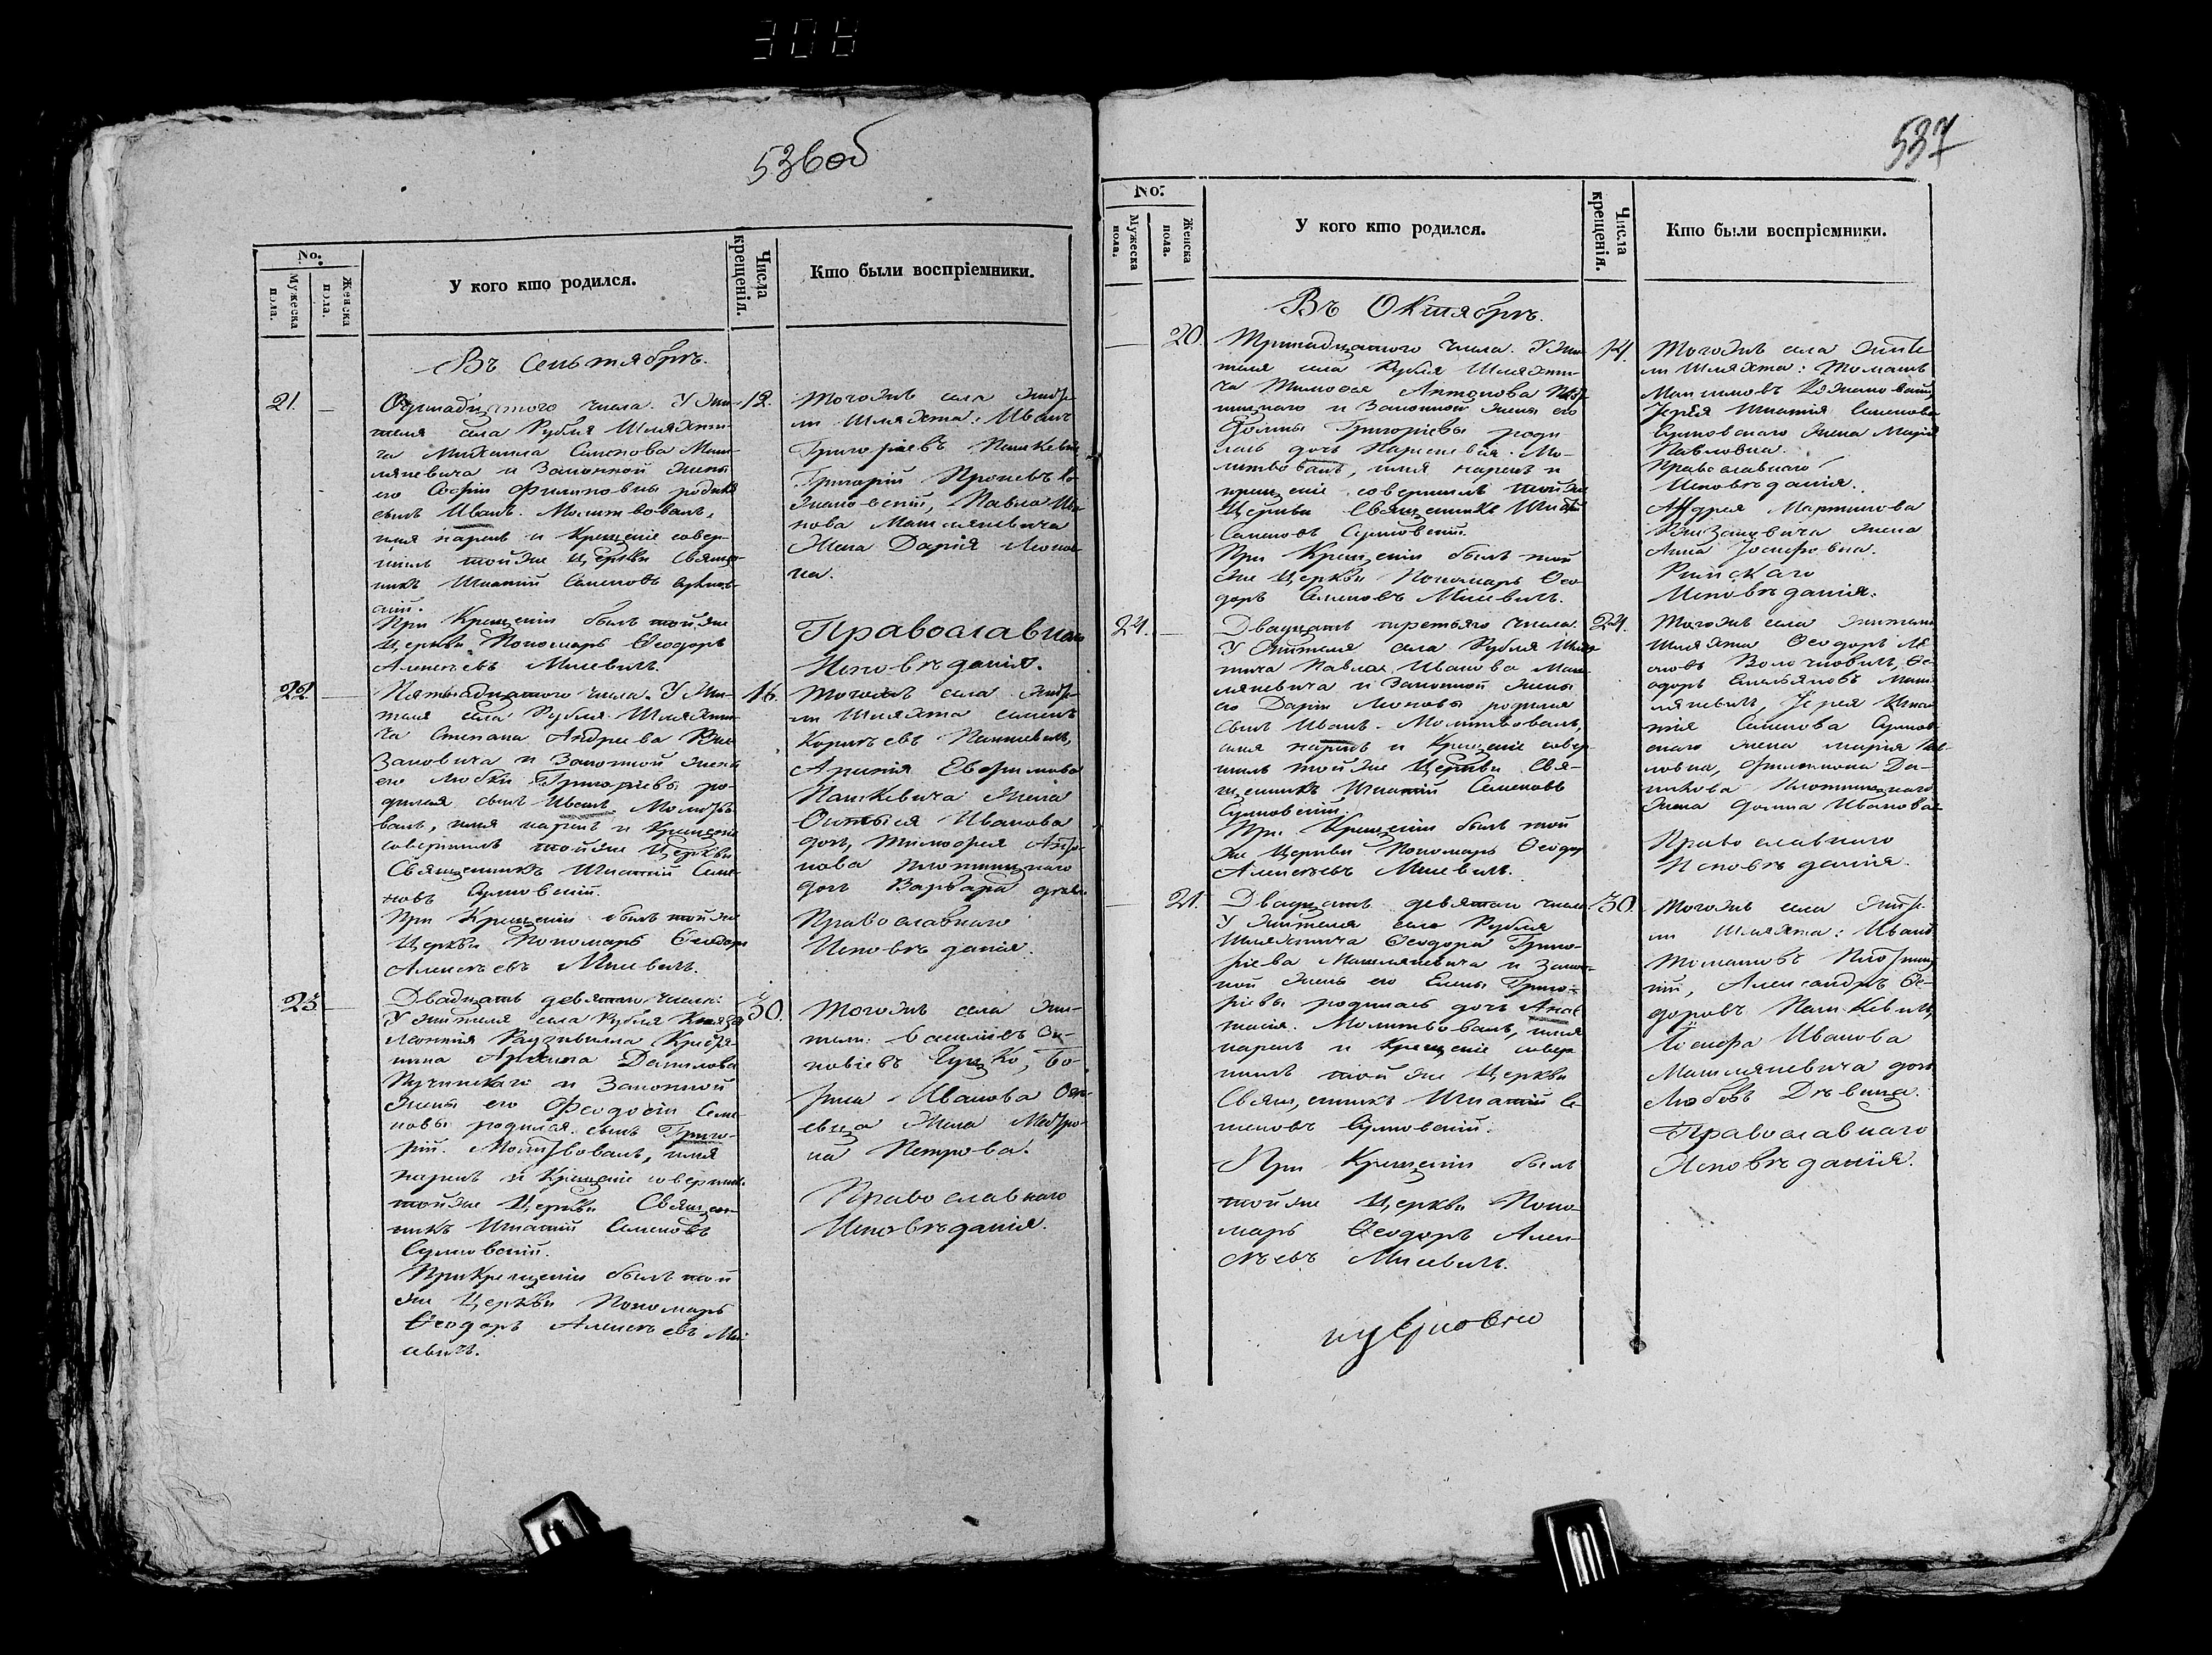 308
536об
No.
Мужеска пола.
Женска пола.
У кого кто родился.
Числа крещенія.
Кто были воспріемники.
Въ Сентябрѣ.
21.
—
12.
числа. У жи-
теля села Рубля Шляхти-
ча Михаила Семенова Маш-
ляkевича и Законной жены
его Софіи Филиповны родился
сынъ Иванъ. Молитвовалъ,
имя нарекъ и Крещеніе совер-
шилъ тойже Церкви Священ-
никъ Игнатій Семеновъ
При Крещеніи былъ тойже
Церкви Пономарь Ѳеодоръ
Алексѣевъ Мисевичъ.
Тогожъ села жите-
ли Шляхта: Иванъ
Григоріевъ Пашкевичъ
Григорій
Павла Ива-
нова Машлякевича
Жена Дарія Леоно-
ва.
Православнаго
Исповѣданія.
22.
—
16.
Пятнадцатого числа. У жи-
теля села Рубля Шляхти-
ча Степана Андреева Вы-
и Законной жены
его Любви Григоріевы ро-
дился сынъ Иванъ. Молитво-
валъ, имя нарекъ и Крещеніе
совершилъ тойже Церкви
Священникъ Игнатій Семе-
новъ
При Крещеніи былъ тойже
Церкви Пономарь Ѳеодоръ
Алексѣевъ Мисевичъ.
Тогожъ села жите-
ли Шляхта Семенъ
Корнѣевъ Пашкевичъ,
Евфимова
Пашкевича Жена
Иванова
дочь, Тимофея Анто-
нова Плотницкаго
дочь Варвара
Православнаго
Исповѣданія.
23.
—
30.
Двадцать девятого числа
У жителя села Рубля Князя
Леонтія Радзивила Кресть-
янина Архипа Данилова
Ручинскаго и Законной
жены его Феодосіи Семе-
новы родился сынъ Григо-
рій. Молитвовалъ, имя
нарекъ и Крещеніе совершилъ
тойже Церкви Священ-
никъ Игнатій Семеновъ
При Крещеніи былъ той
же Церкви Пономарь
Ѳеодоръ Алексѣевъ Ми-
севичъ.
Тогожъ села жи-
тели:
Иванова
Жена Матро-
на Петрова.
Православнаго
Исповѣданія.
537
No:
Мужеска пола.
Женска пола.
У кого кто родился.
Числа крещенія.
Кто были воспріемники.
Въ Октябрѣ.
—
20.
14.
Тринадцатого числа. У жи-
теля села Рубля Шляхти-
ча Тимофея Антонова Плот-
ницкаго и Законной жены его
Домны Григоріевы роди-
лась дочь Параскевія. Мо-
литвовалъ, имя нарекъ и
крещеніе совершилъ тойже
Церкви Священникъ Игнатій
Семеновъ
При Крещеніи былъ той
же Церкви Пономарь Ѳео-
доръ Мисевичъ.
Тогожъ села жите-
ли Шляхта: Томашъ
Іерея Игнатія Семенова
жена Марія
Павловна.
Православнаго
Исповѣданія.
Андрея Мартинова
жена
Анна Іосифовна.
Римскаго
Исповѣданія.
24.
—
24.
Двадцать третьяго числа.
У жителя села Рубля Шлях-
тича Павла Иванова Маш-
лякевича и Законной жены
его Даріи Леоновы родился
сынъ Иванъ. Молитвовалъ,
имя нарекъ и Крещеніе совер-
шилъ тойже Церкви Свя-
щенникъ Игнатій Семеновъ
При Крещеніи былъ той
же Церкви Пономарь Ѳеодоръ
Алексѣевъ Мисевичъ.
Тогожъ села жители
Шляхта Ѳеодоръ
Ѳе-
одоръ Емельяновъ Маш-
лякевичъ, Іерея Игна-
тія Семенова
жена Марія Пав-
ловна, Филимона Да-
нилова Плотницкаго
жена Домна Иванова
Православнаго
Исповѣданія.
—
21.
30.
Двадцать девятаго числа
У жителя села Рубля
Шляхтича Ѳеодора Григо-
ріева Машлякевича и Закон-
ной жены его Елены Григо-
ріевы родилась дочь Анас-
тасія. Молитвовалъ, имя
нарекъ и Крещеніе совер-
шилъ той же Церкви
Священникъ Игнатій Се-
меновъ
При Крещеніи былъ
тойже Церкви Поно-
марь Ѳеодоръ Алек-
сѣевъ Мисевичъ.
Тогожъ села жите-
ли Шляхта: Иванъ
Томашовъ Плотниц-
кій, Александръ Ѳе-
доровъ Пашкевичъ,
Іосифа Иванова
Машлякевича дочь
Любовь Дѣвица.
Православнаго
Исповѣданія.